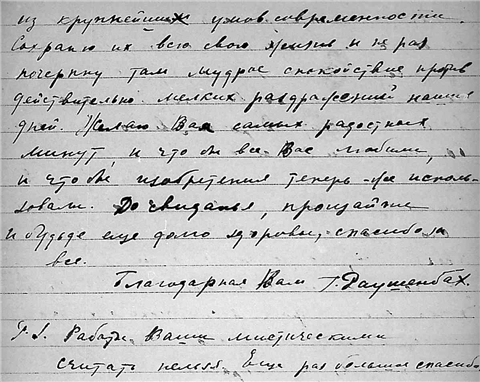 из крупнейших умов современности.
Сохраню их всю свою жизнь и не раз
почерпну там мудрое спокойствие против
действительно мелких раздражений наших
дней. Желаю Вам самых радостных
минут, и что бы все Вас любили,
и что бы изобретения теперь же исполь-
зовали. До свиданья, прощайте
и будьте еще долго здоровы, спасибо за
все.
Благодарная Вам Т. Раушенбах.
P.S. Работы Ваши мистическими
считать нельзя. Еще раз большое спасибо